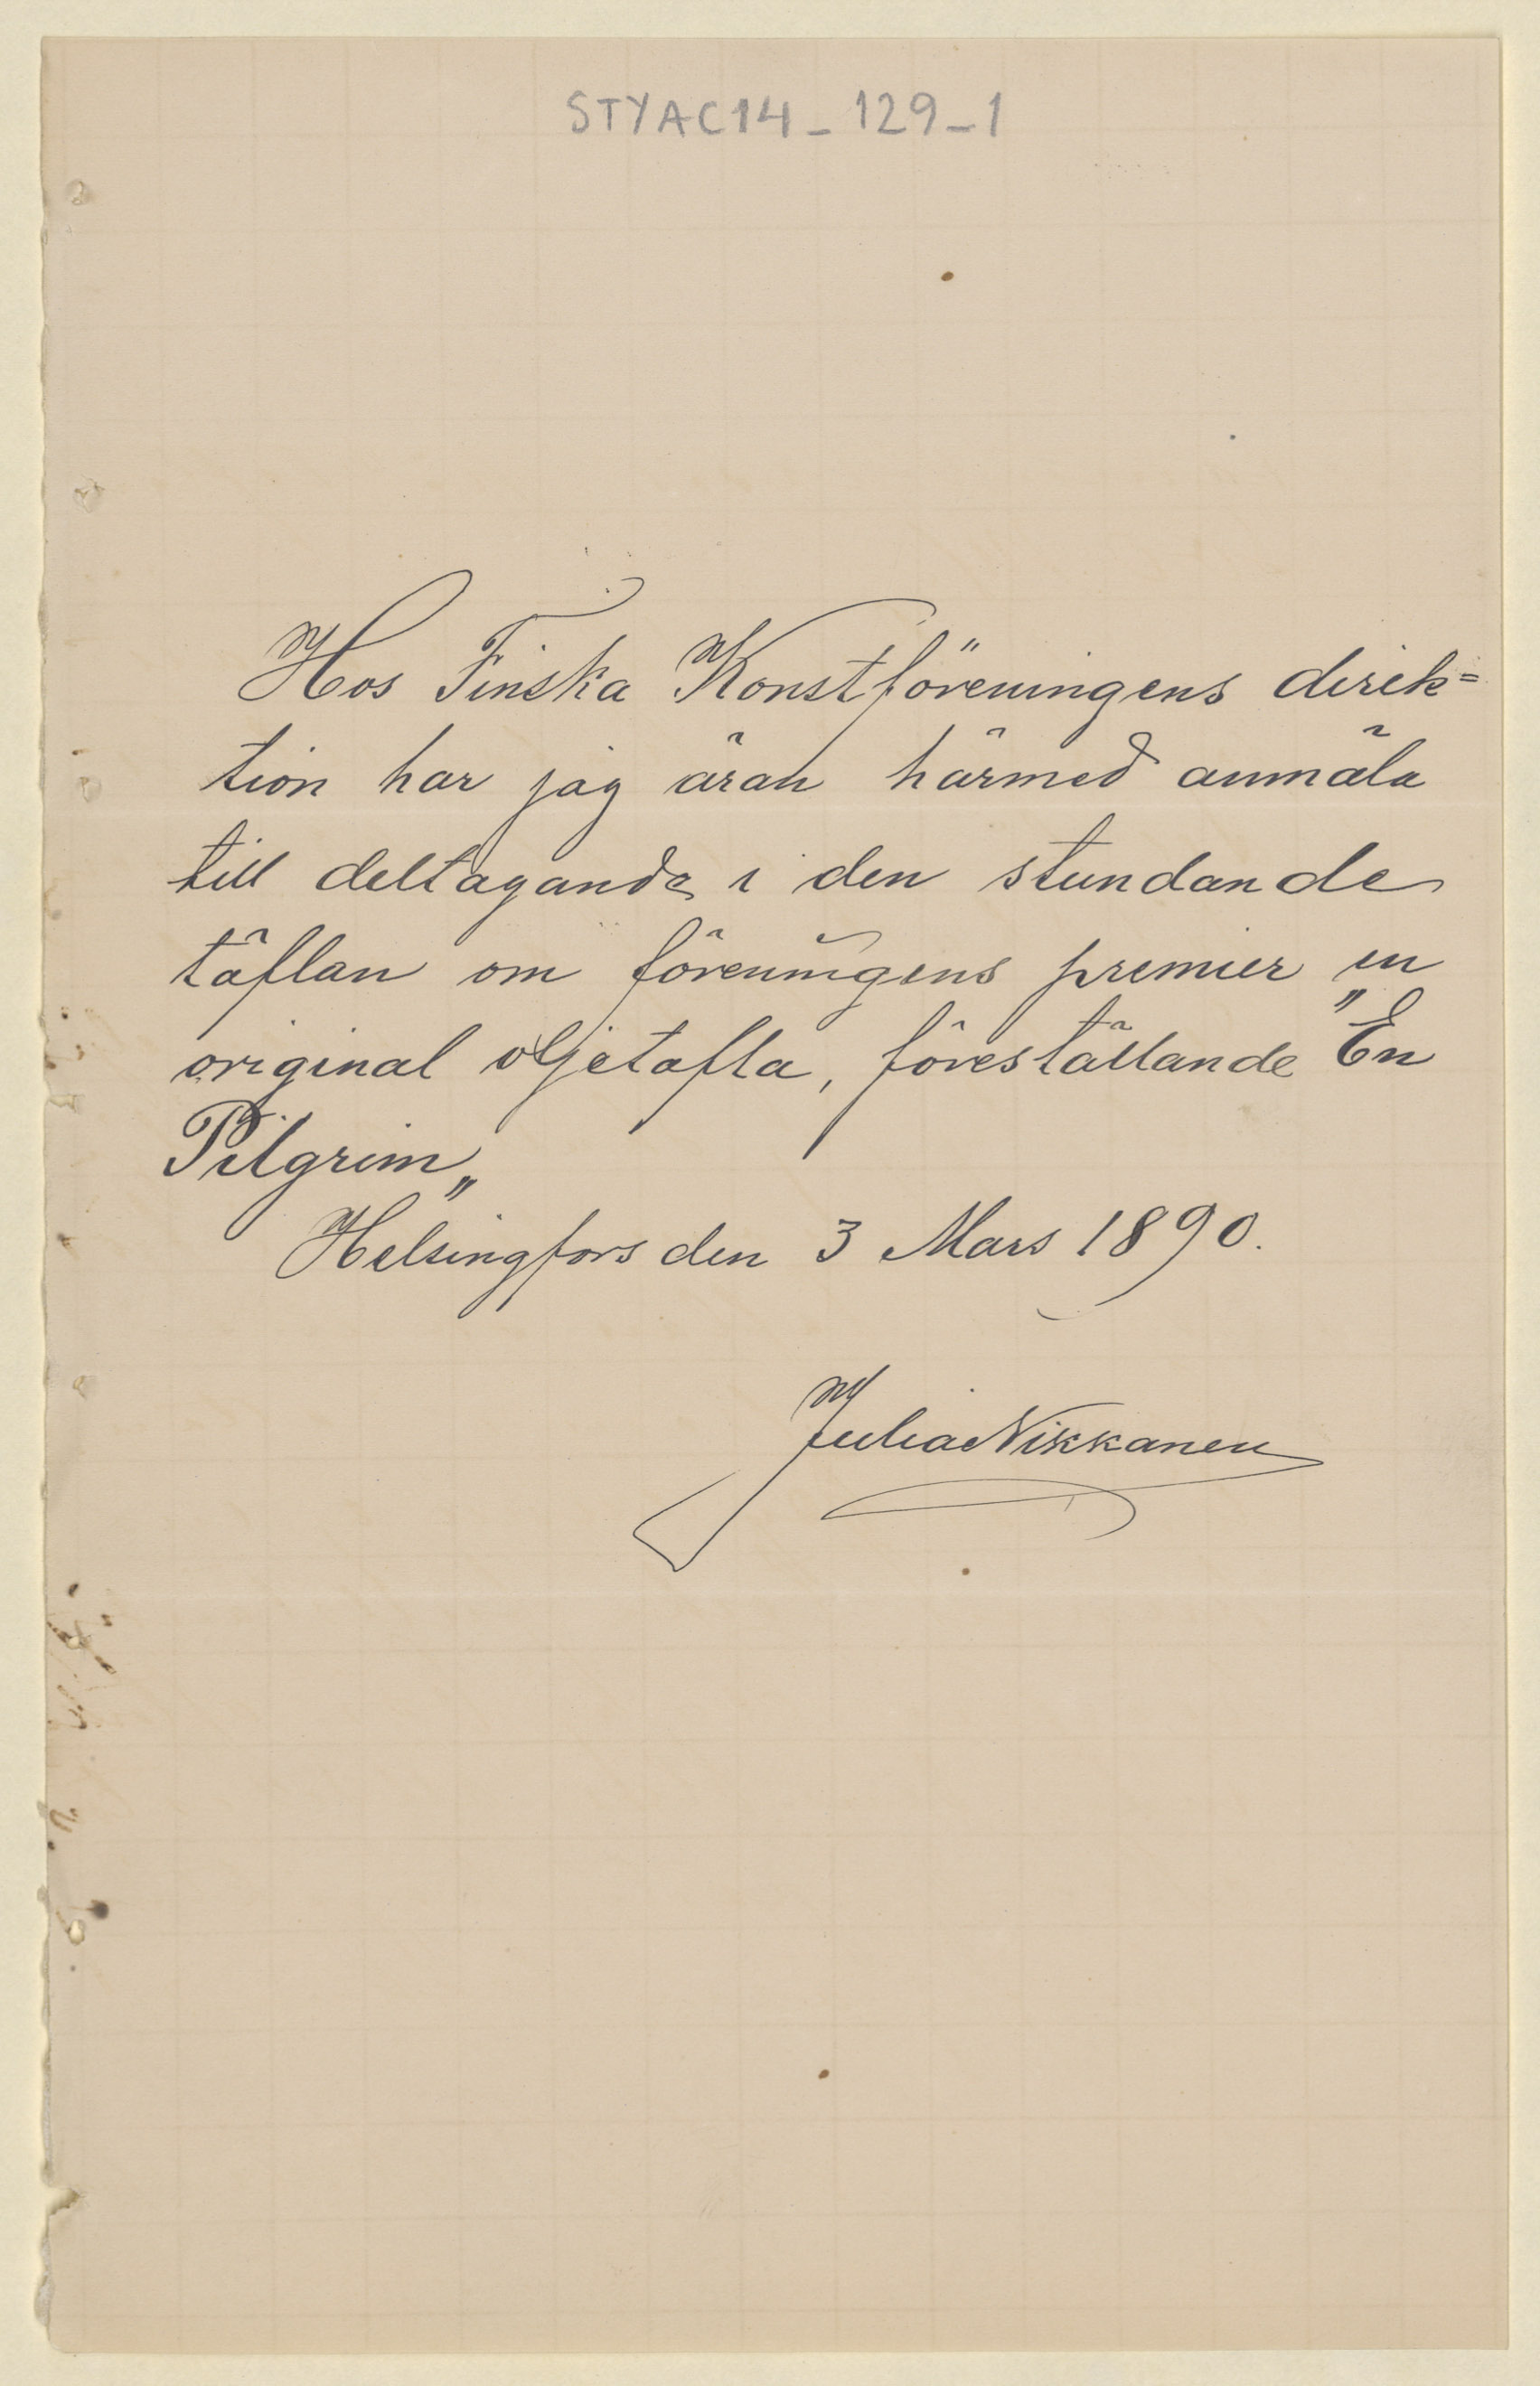 STYAC14_129_1
Hos Finska Konstföreningens direk=
tion har jag äran härmed anmäla
till deltagande i den stundande
täflan om föreningens premier en
original oljetafla, föreställande "En
Pilgrim„
Helsingfors den 3 Mars 1890.
Julia Nikkanen